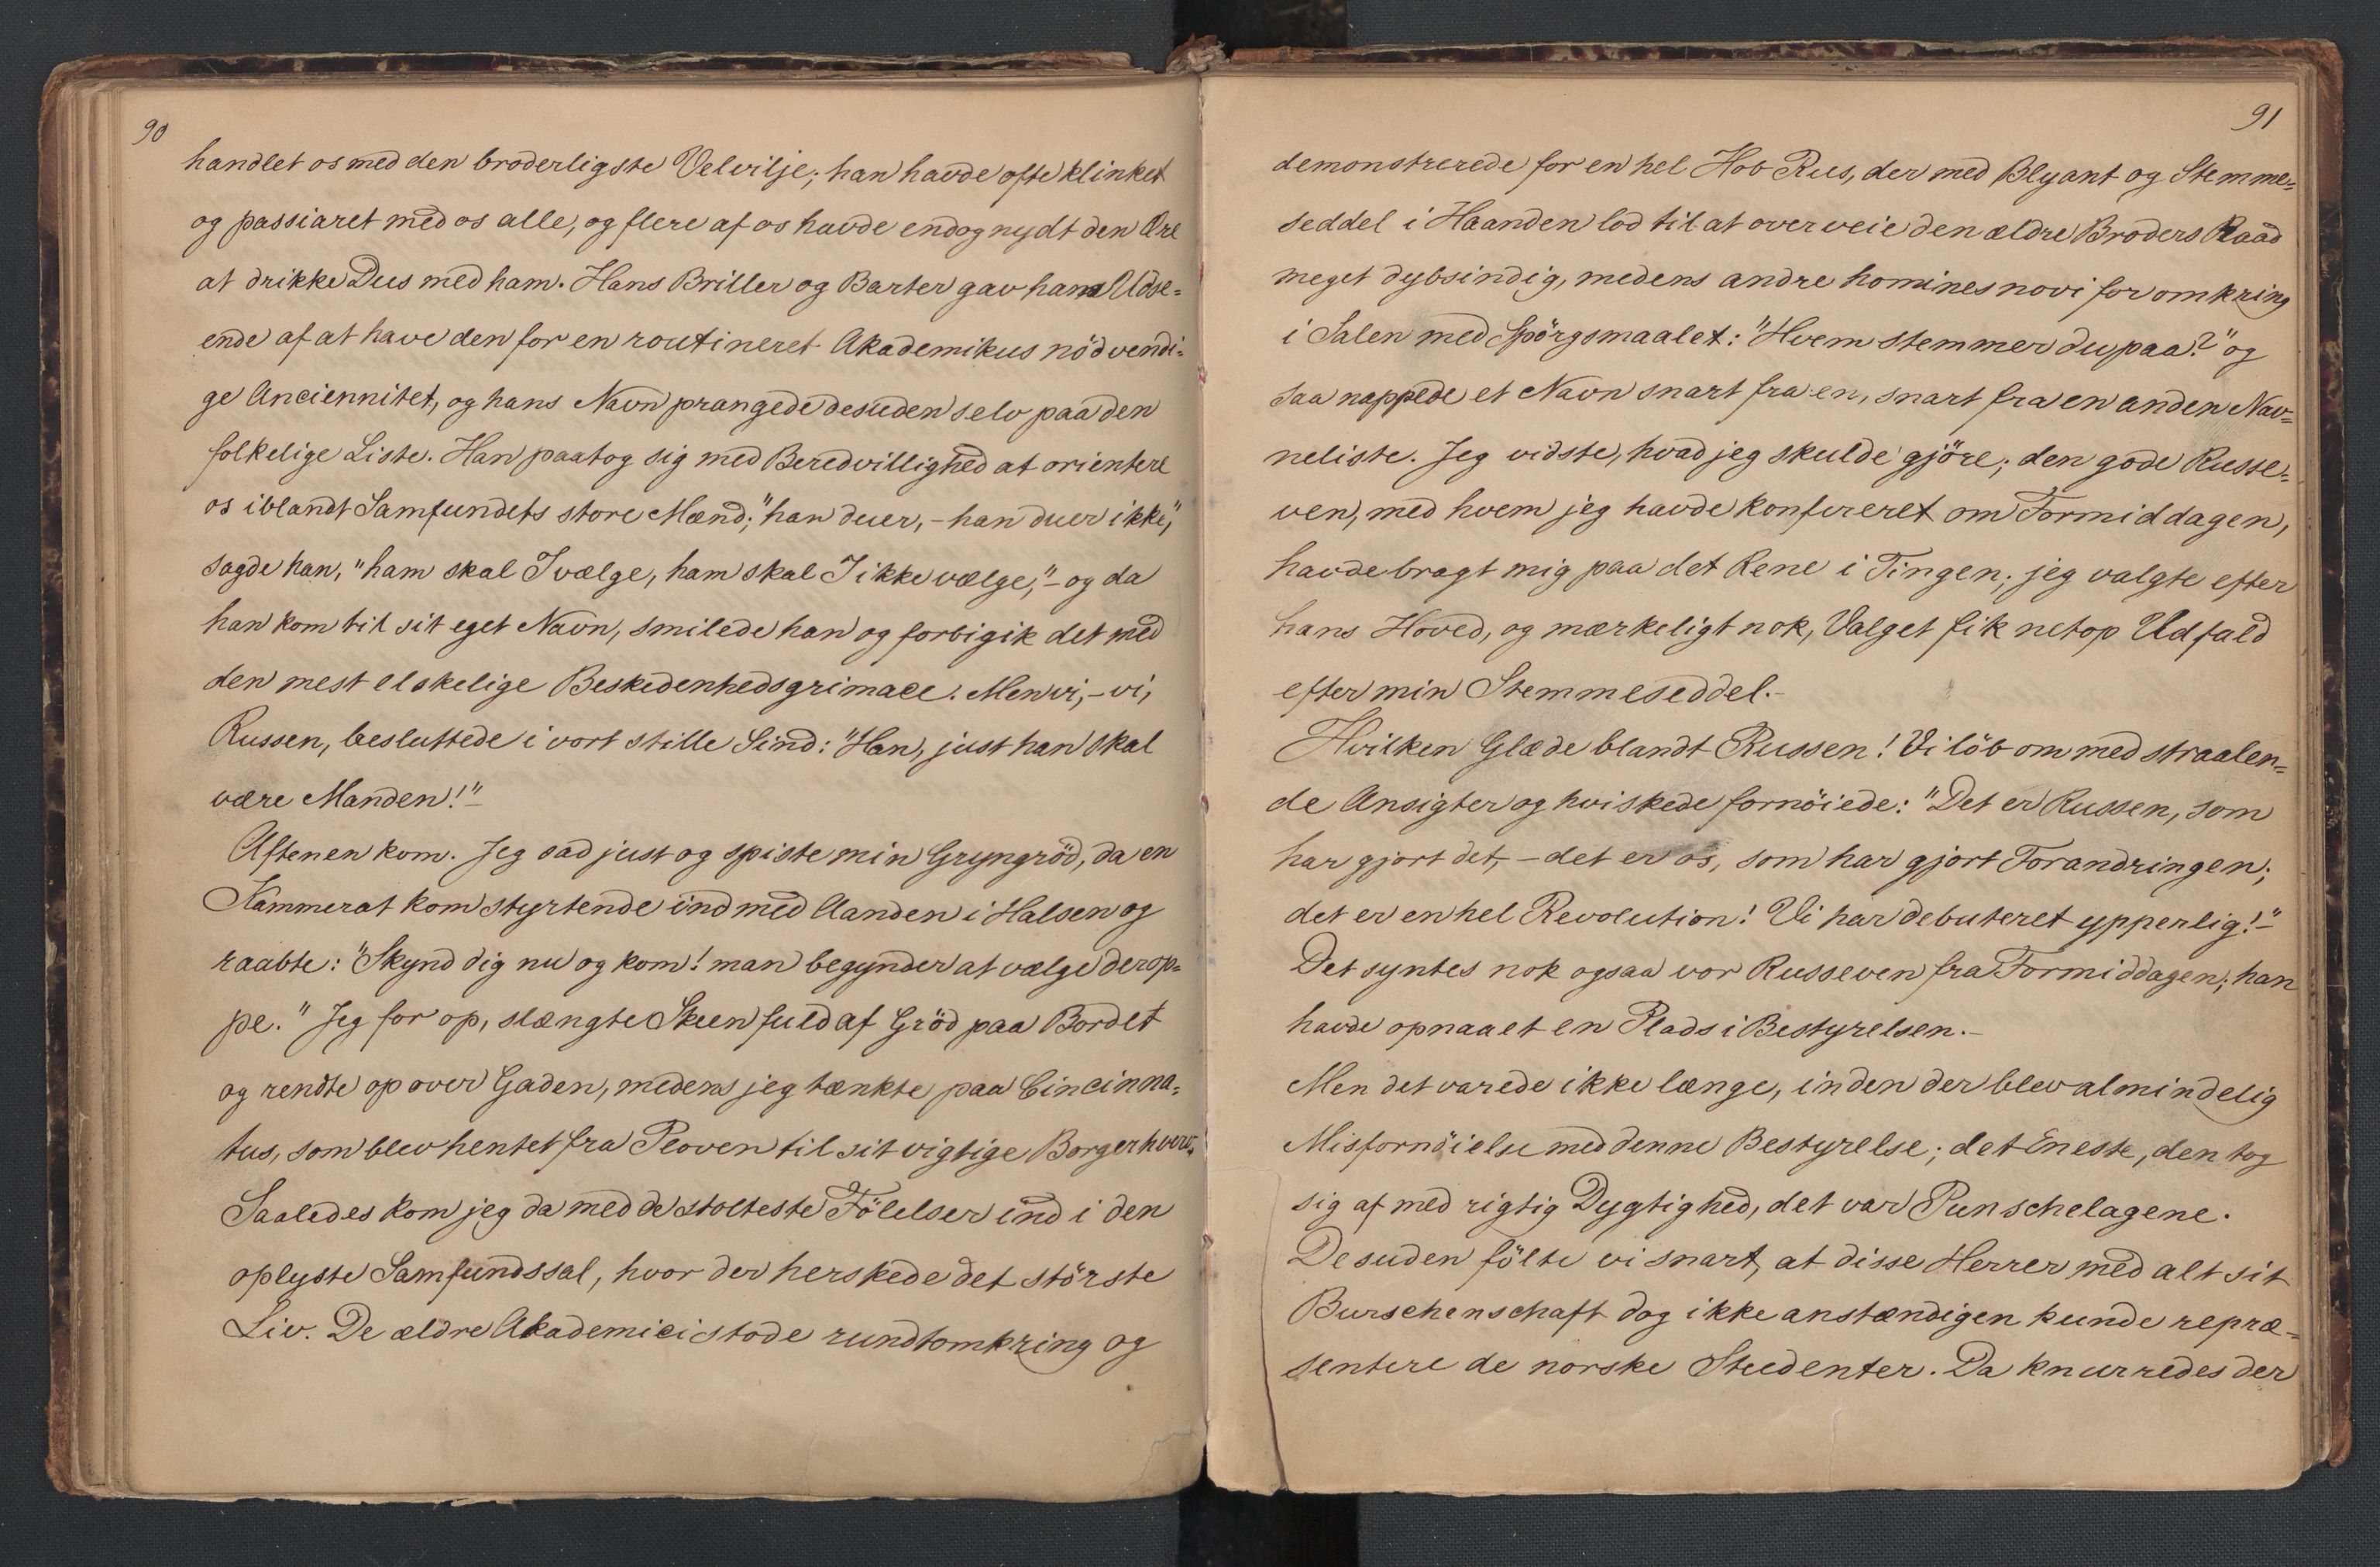 90
handlet os med den broderligste Velvilje; han havde ofte klinket
og passiaret med os alle, og flere af os havde endog nydt den Ære
at drikke Dus med ham. Hans Briller og Barter gav hans Udse=
ende af at have den for en routineret Akademikus nödvendi=
ge Anciennitet, og hans Navn prangede desuden selv paa den
folkelige Liste. Han paatog sig med Beredvillighed at orientere
os iblandt Samfundets store Mænd; "han duer, – han duer ikke,"
sagde han, "ham skal I vælge, ham skal I ikke vælge," – og da
han kom til sit eget Navn, smilede han og forbigik det med
den mest elskelige Beskedenhedsgrimace. Men vi, – vi,
Russen, besluttede i vort stille Sind: "Han, just han skal
være Manden!" –
Aftenen kom. Jeg sad just og spiste min Gryngröd, da en
Kammerat kom styrtende ind med Aanden i Halsen og
raabte: "Skynd dig nu og kom! man begynder at vælge derop=
pe." Jeg for op, slængte Skeen fuld af Gröd paa Bordet
og rendte op over Gaden, medens jeg tænkte paa Cincinna=
tus, som blev hentet fra Ploven til sit vigtige Borgerhverv.
Saaledes kom jeg da med de stolteste Fölelser ind i den
oplyste Samfundssal, hvor der herskede det störste
Liv. De ældre Akademici stode rundtomkring og
91
demonstrerede for en hel Hob Rus, der med Blyant og Stemme=
seddel i Haanden lod til at overveie den ældre Broders Raad
meget dybsindig, medens andre homines novi for omkring
i Salen med Spörgsmaalet: "Hvem stemmer du paa?" og
saa nappede et Navn snart fra en, snart fra en anden Nav=
neliste. Jeg vidste, hvad jeg skulde gjöre; den gode Russe=
ven, med hvem jeg havde konfereret om Formiddagen,
havde bragt mig paa det Rene i Tingen; jeg valgte efter
hans Hoved, og mærkeligt nok, Valget fik netop Udfald
efter min Stemmeseddel. –
Hvilken Glæde blandt Russen! Vi löb om med straalen=
de Ansigter og hviskede fornöiede: "Det er Russen, som
har gjort det, – det er os, som har gjort Forandringen;
det er en hel Revolution! Vi har debuteret ypperlig!" –
Det syntes nok ogsaa vor Russeven fra Formiddagen; han
havde opnaaet en Plads i Bestyrelsen. –
Men det varede ikke længe, inden der blev almindelig
Misfornöielse med denne Bestyrelse; det Eneste, den tog
sig af med rigtig Dygtighed, det var Punschelagene.
Desuden fölte vi snart, at disse Herrer med alt sit
Burschenschaft dog ikke anstændigen kunde repræ=
sentere de norske Studenter. Da knurredes der